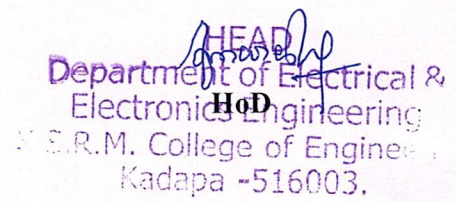 HEAD
Department of Electrical &
Electronics Engineering
HoD
.S.R.M. College of
Kadapa -516003.